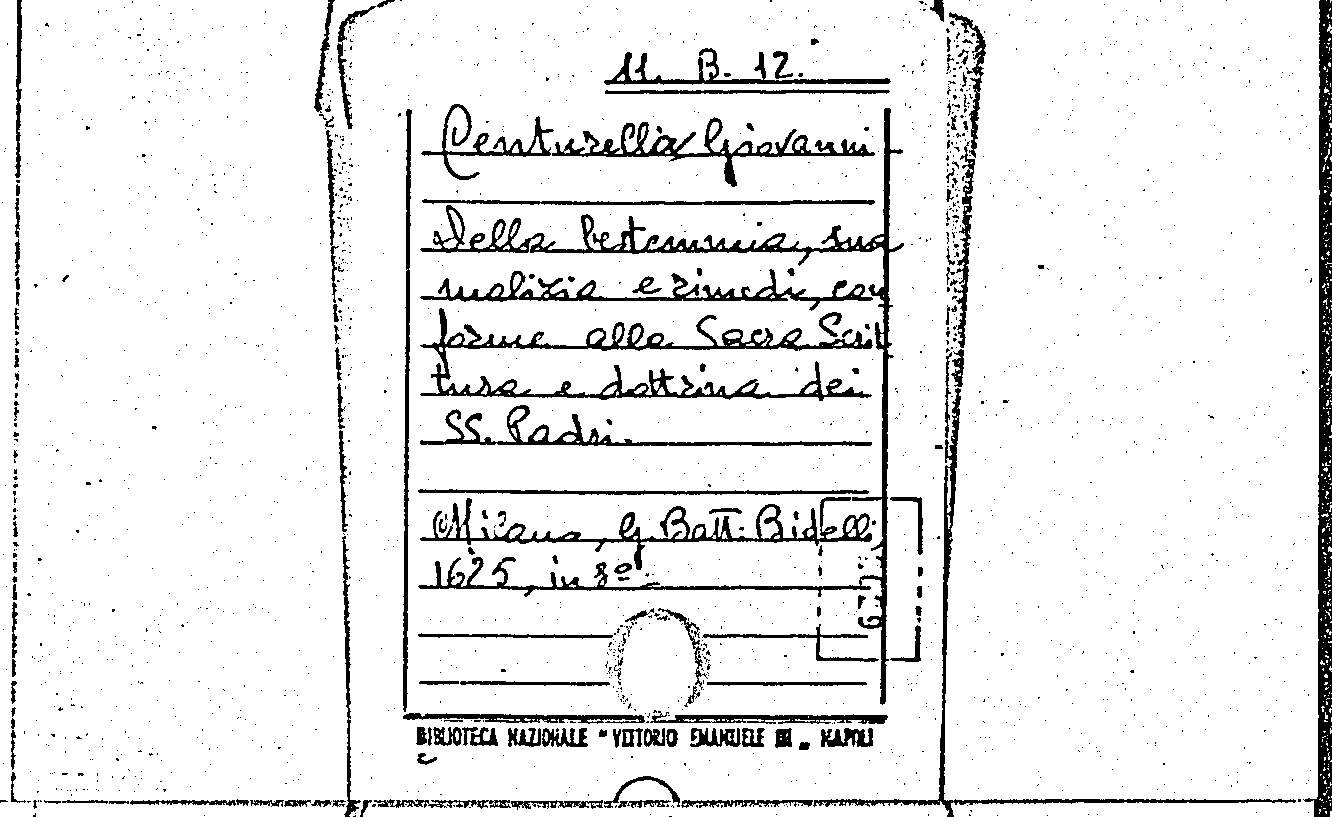 11. B. 12.
Centurella Giovanni
Della bestemmia, sua
malizia e rimedi, con
forme alla Sacra Scrit
tura e dottrina dei
SS. Padri.
Milano, G. Batt. Bidelli,
1625, in 8º
BIBLIOTECA NAZIONALE "VITTORIO EMANUELE III„ NAPOLI